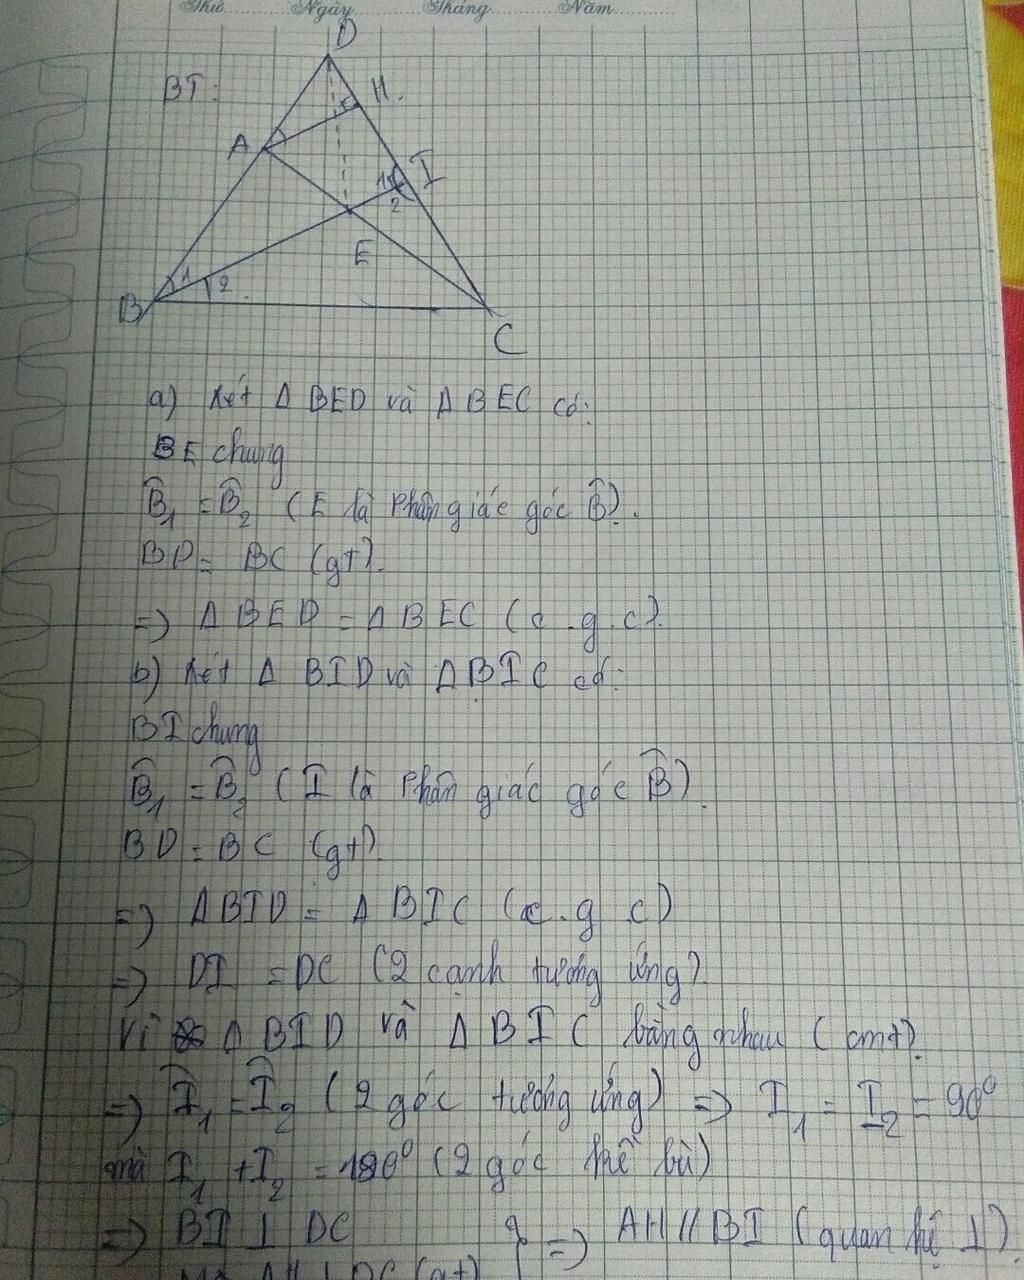 Thứ Ngày Tháng Năm
D
BT:
H.
A
I
1
2
E
B
1
2
C
a) Xét Δ BED và Δ BEC có:
BE chung
B̂₁ = B̂₂ (E là Phân giác góc B̂).
BD = BC (gt).
=> Δ BED = Δ BEC (c.g.c).
b) Xét Δ BID và Δ BIC có:
BI chung
B̂₁ = B̂₂ (I là Phân giác góc B̂).
BD = BC (gt).
=> Δ BID = Δ BIC (c.g c)
=> DI = DC (2 cạnh tương ứng).
Vì Δ BID và Δ BIC bằng nhau (cmt).
=> Î₁ = Î₂ (2 góc tương ứng) => I₁ = I₂ = 90⁰
mà I₁ + I₂ = 180⁰ (2 góc kề bù)
=> BI ⊥ DC } => AH // BI (quan hệ ⊥).
Mà AH ⊥ DC (gt)